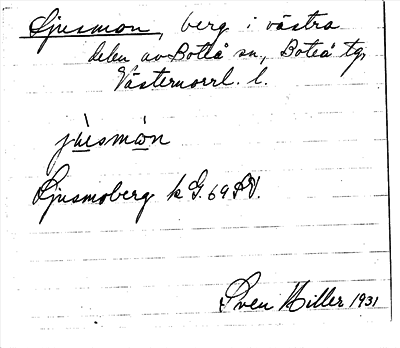 Ljusmon, berg i västra
delen av Boteå sn, Boteå tg,
Västernorrl. l.
jùsmòn
Ljusmoberg k G. 69 SV.
Sven Hiller 1931